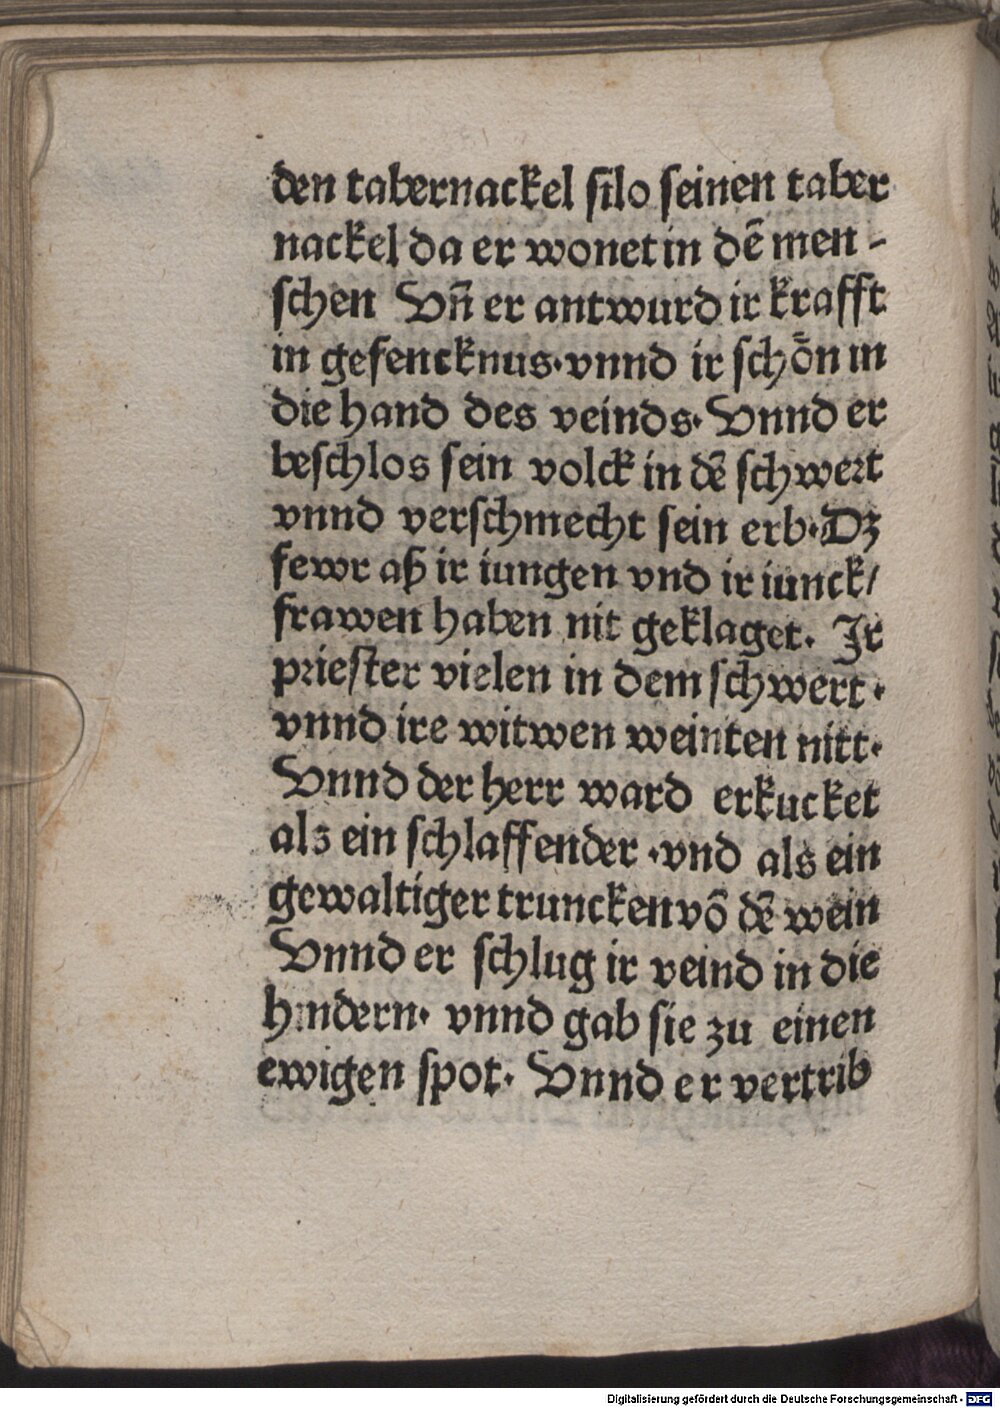 den tabernackel silo seinen taber
nackel da er wonet in dē men -
schen Vn̄ er antwurd ir krafft
in gefencknus · vnnd ir schōn in
die hand des veinds · Vnnd er
beschlos sein volck in dē schwert
vnnd verschmecht sein erb · Dz
fewr aß ir iungen vnd ir iunck/
frawen haben nit geklaget. Ir
priester vielen in dem schwert ·
vnnd ire witwen weinten nitt ·
Vnnd der herr ward erkucket
als ein schlaffender · vnd als ein
gewaltiger truncken vō dē wein
Vnnd er schlug ir veind in die
hindern · vnnd gab sie zu einen
ewigen spot · Vnnd er vertrib
Digitalisierung gefördert durch die Deutsche Forschungsgemeinschaft - DFG